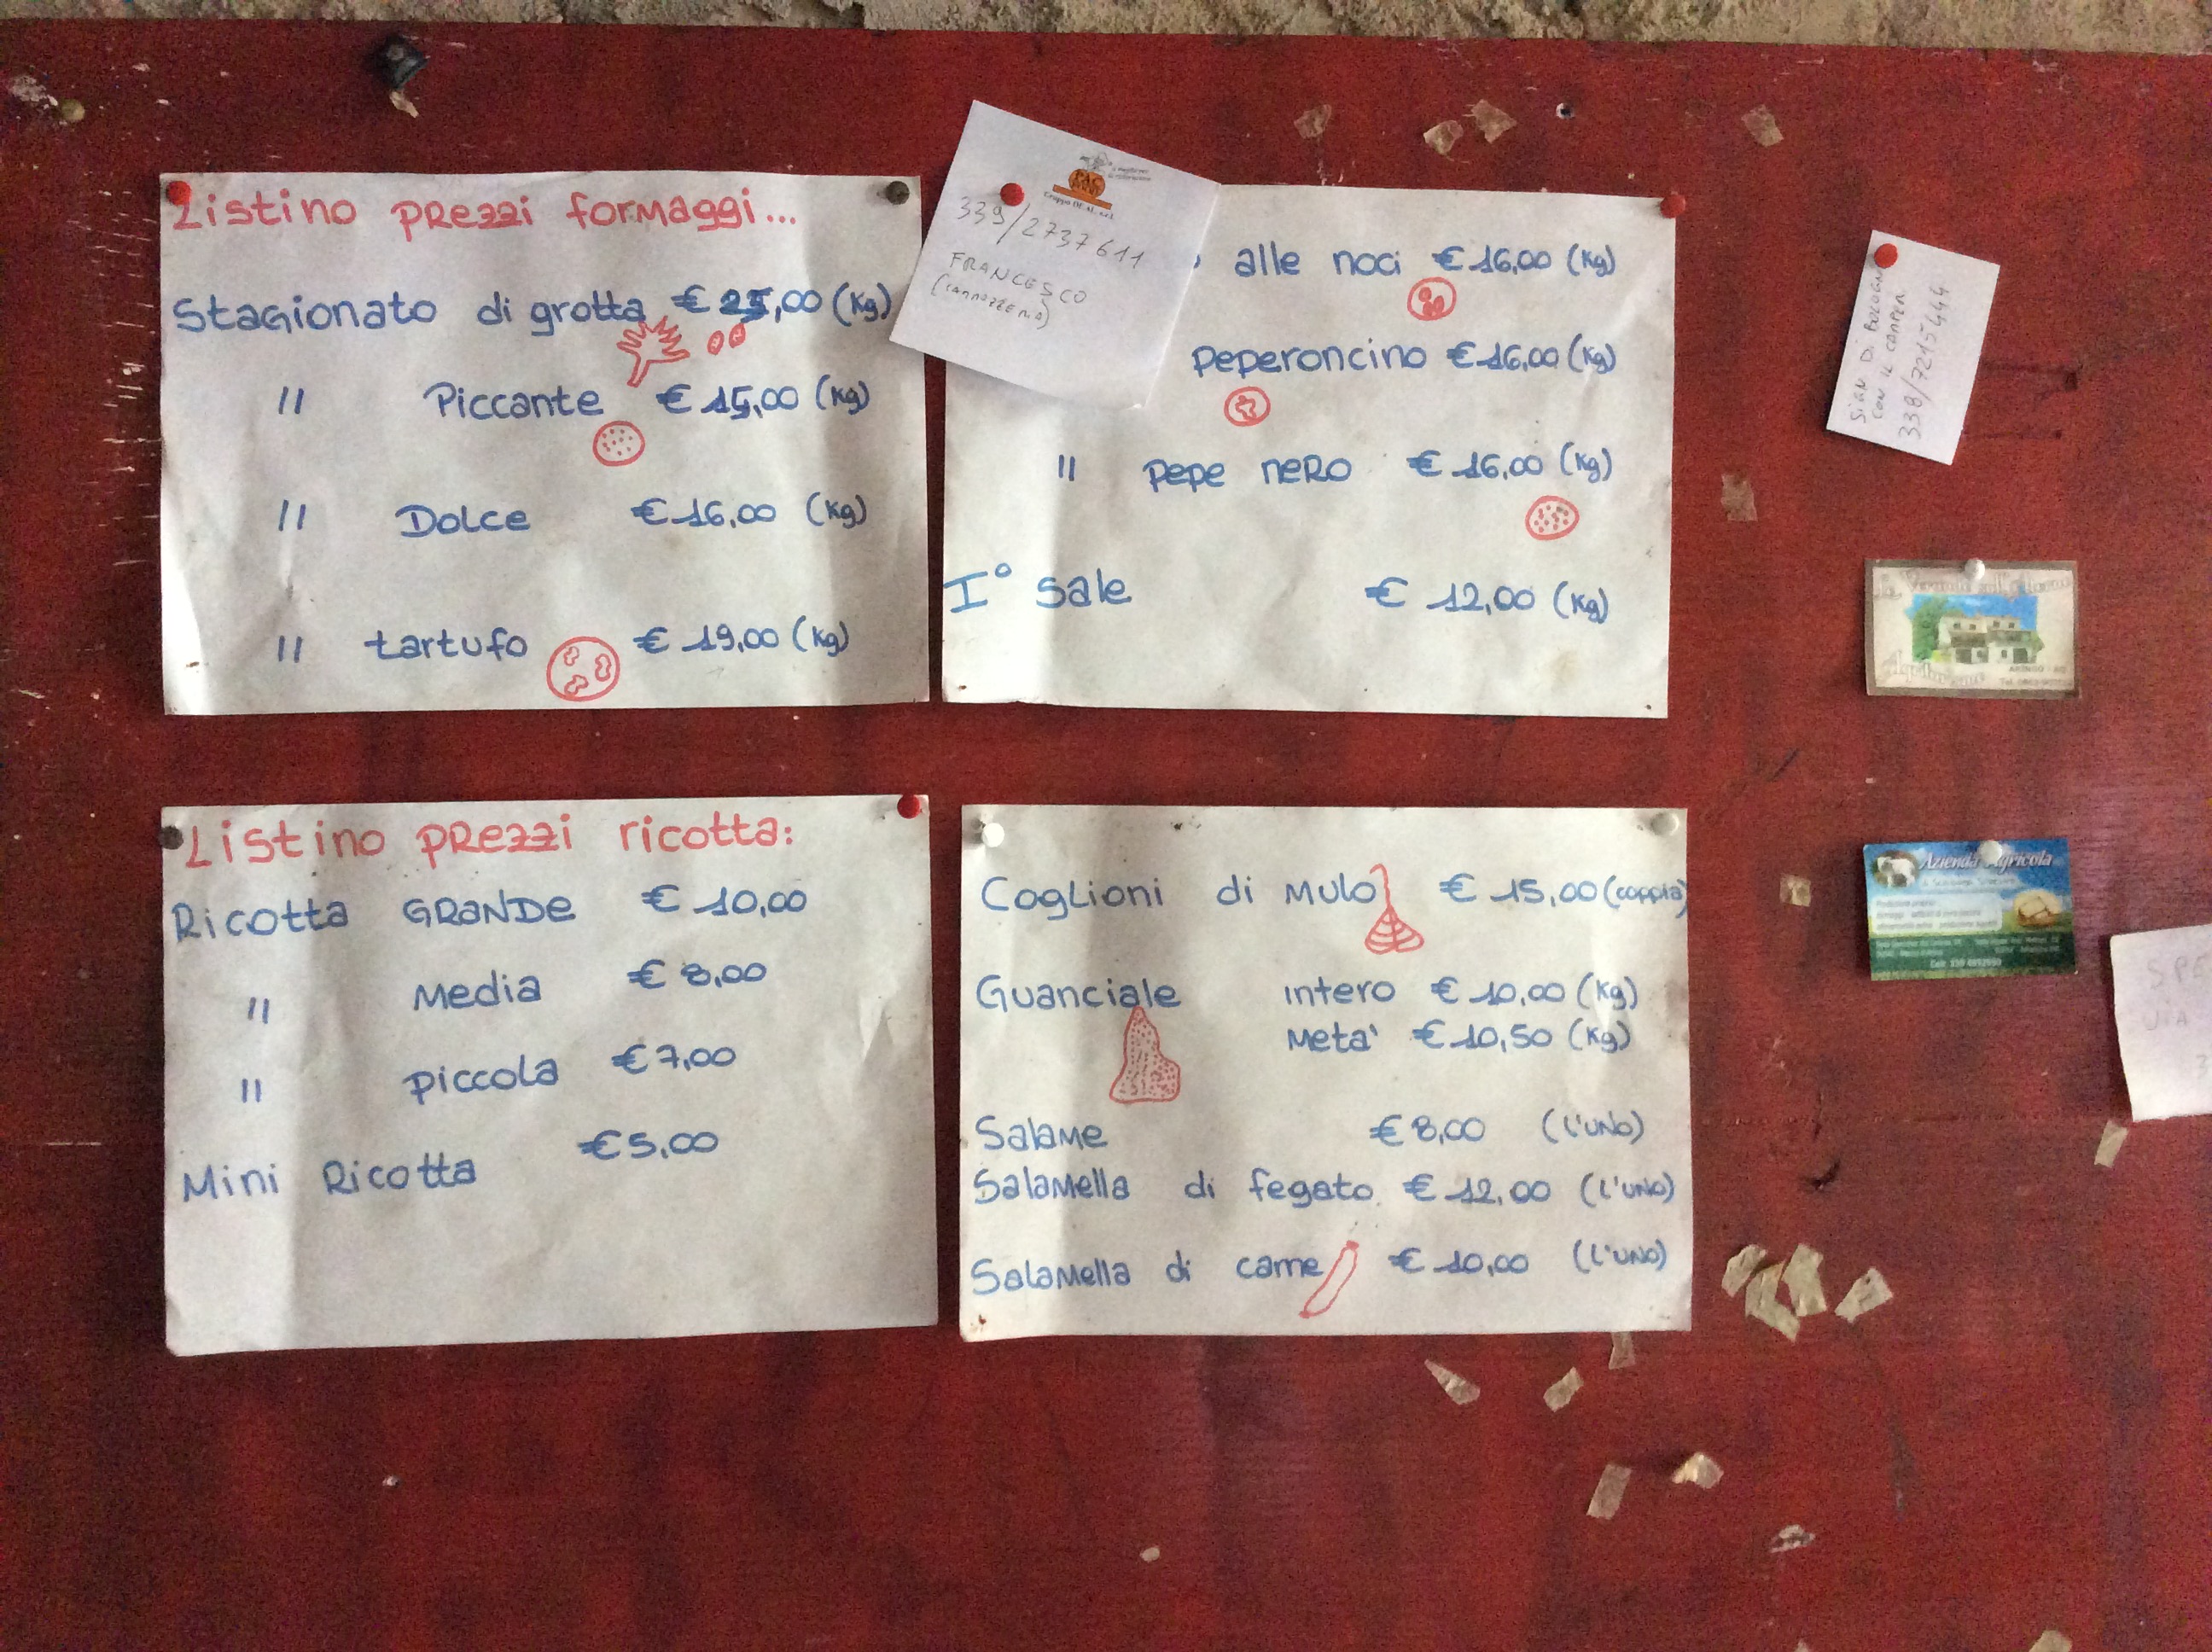 Listino prezzi formaggi...
Stagionato di grotta € 25,00 (Kg)
" Piccante € 15,00 (Kg)
" Dolce € 16,00 (Kg)
" tartufo € 19,00 (Kg)
339/2737611
FRANCESCO
alle noci € 16,00 (Kg)
peperoncino € 16,00 (Kg)
" pepe nero € 16,00 (Kg)
I° sale € 12,00 (Kg)
Listino prezzi ricotta:
Ricotta GRANDE € 10,00
" Media € 8,00
" piccola € 7,00
Mini Ricotta € 5,00
Coglioni di Mulo € 15,00 (coppia)
Guanciale intero € 10,00 (Kg)
Metà € 10,50 (Kg)
Salame € 8,00 (l'uno)
Salamella di fegato € 12,00 (l'uno)
Salamella di carne € 10,00 (l'uno)
338/7215444
Azienda Agricola
SPE